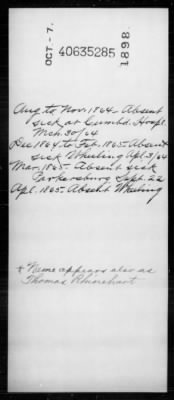 OCT - 7.
40635285
1898
Aug to Nov. 1864 - Absent
sick at Cumbd. Hospl.
Mch. 30/64
Dec 1864 to Feb. 1865 - Absent
sick Wheeling Apl. 3/64
Mar, 1865 - Absent sick
Parkersburg Sept. 22
Apl. 1865 - Absent Wheeling
* Name appears also as
Thomas Rhinehart